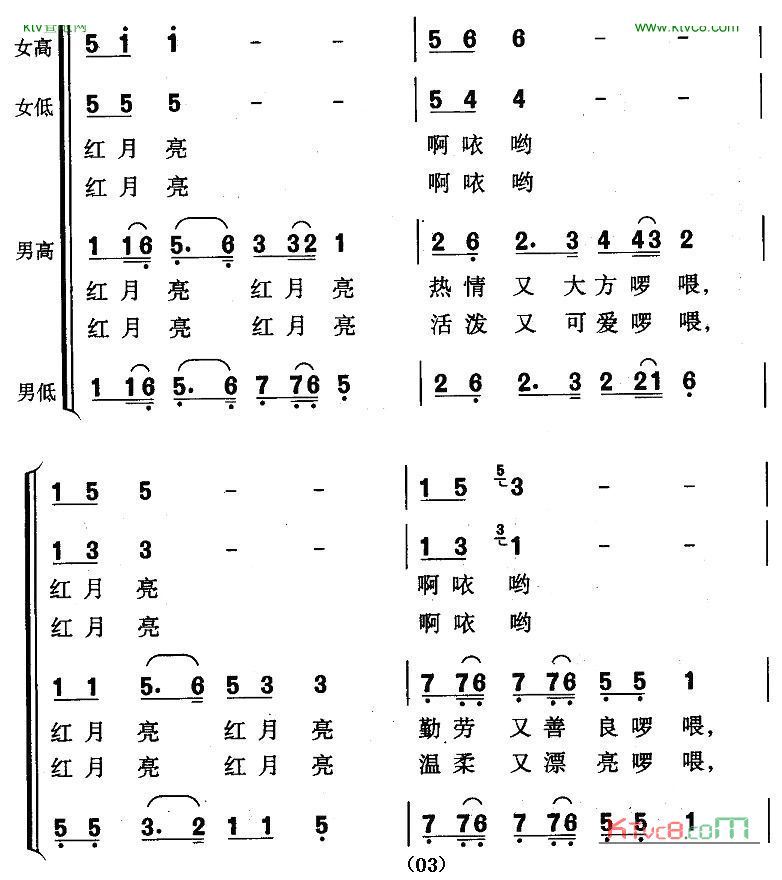 www.ktvc8.com
女高 5 i i - - | 5 6 6 - -
女低 5 5 5 - - | 5 4 4 - -
红月亮 啊哝哟
红月亮 啊哝哟
男高 1 1 6 5. 6 3 3 2 1 | 2 6 2. 3 4 4 3 2
红月亮 红月亮 热情又大方啰喂,
红月亮 红月亮 活泼又可爱啰喂,
男低 1 1 6 5. 6 7 7 6 5 | 2 6 2. 3 2 2 1 6
1 5 5 - - | 1 5 5 3 - -
1 3 3 - - | 1 3 3 1 - -
红月亮 啊哝哟
红月亮 啊哝哟
1 1 5. 6 5 3 3 | 7 7 6 7 7 6 5 5 1
红月亮 红月亮 勤劳又善良啰喂,
红月亮 红月亮 温柔又漂亮啰喂,
5 5 3. 2 1 1 5 | 7 7 6 7 7 6 5 5 1
KTvc8.com
(03)